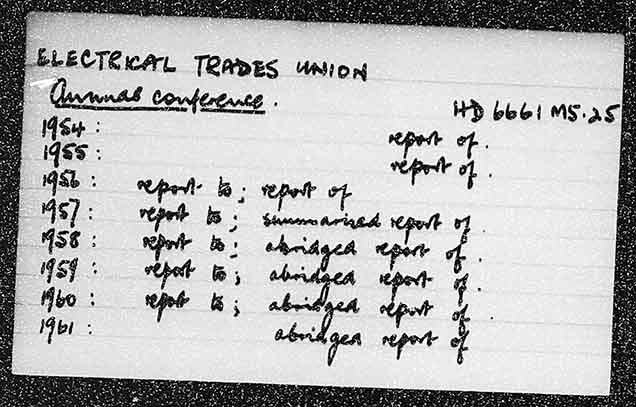 ELECTRICAL TRADES UNION
Annual conference.
HD 6661 M5.25
1954: report of.
1955: report of.
1956: report to; report of
1957: report to; summarised report of.
1958: report to; abridged report of.
1959: report to; abridged report of.
1960: report to; abridged report of.
1961: abridged report of